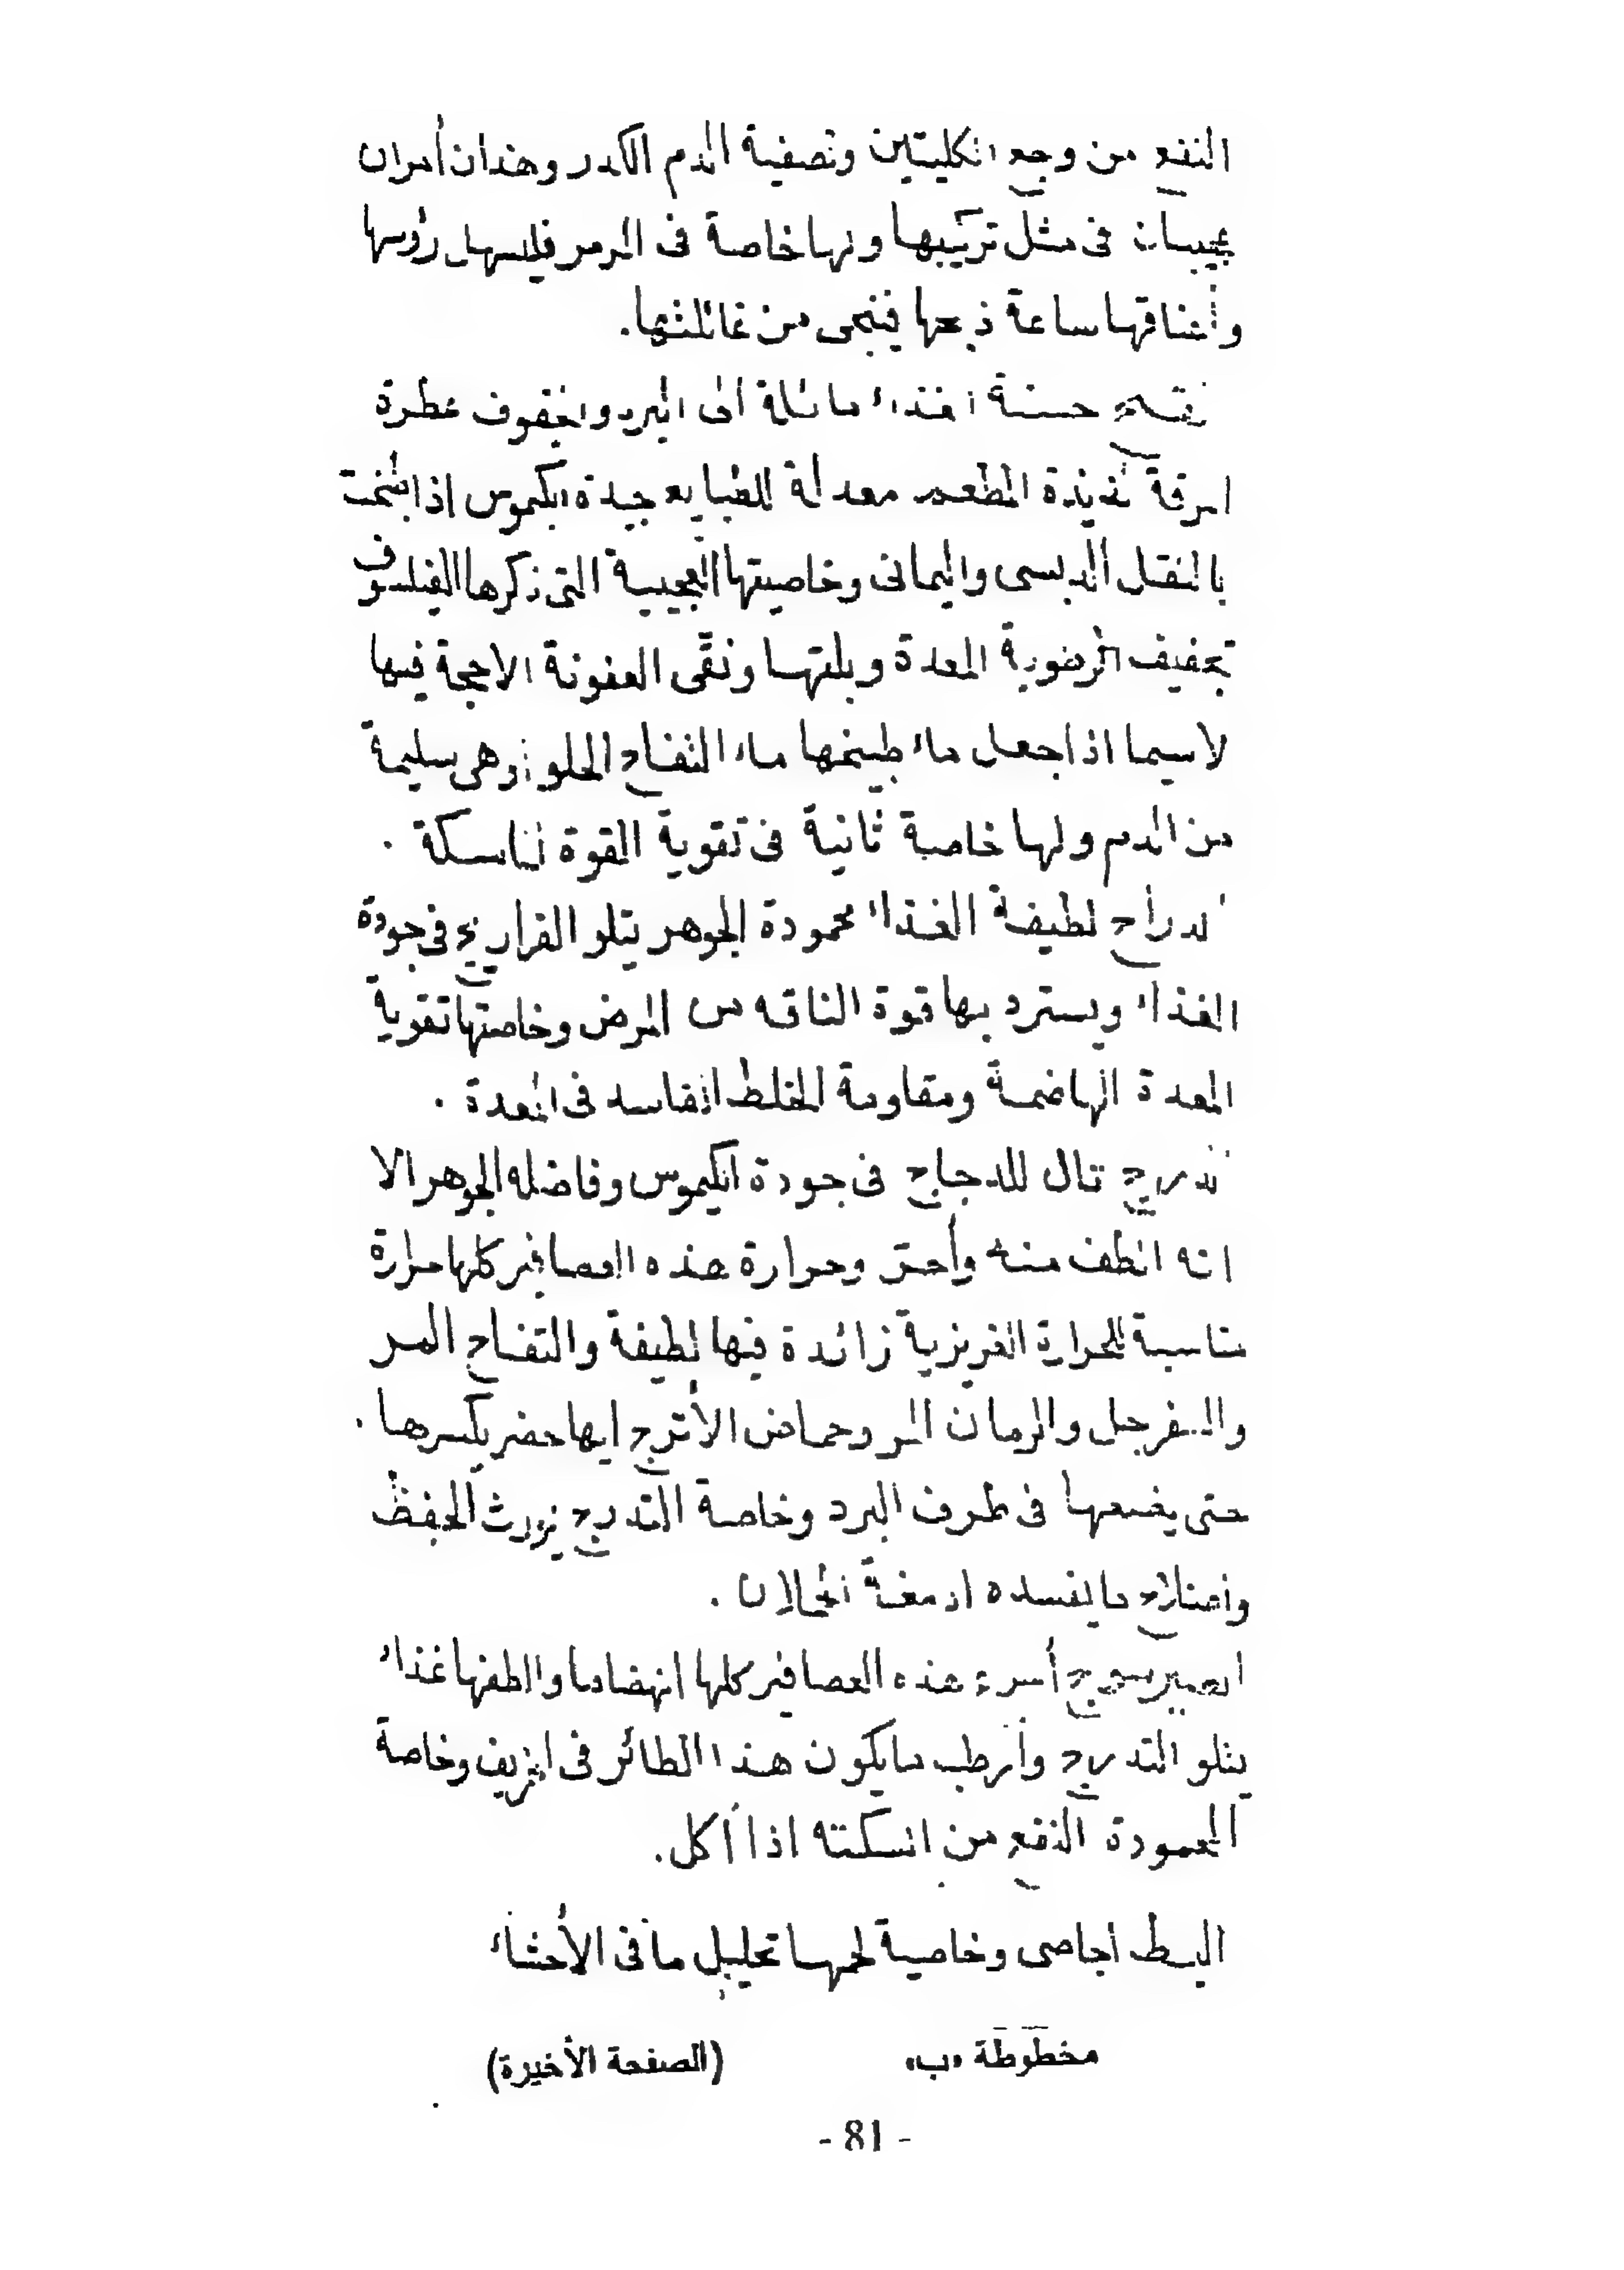 النفع من وجع الكليتين وتصفية الدم الكدر وهذان أمران
عجيبان فى مثل تركيبها ولها خاصة فى الرمر فليسها رؤسها
وأعناقها ساعة ذبحها فينجى من غائلتها.
حسنة الغذاء مائلة الى البرد والخفوف عطرة
المرقة لذيذة المطعم معدلة للطبايع جيدة الكموس اذا طبخت
بالنقل الدبسى واليمانى وخاصيتها العجيبة التى ذكرها الفيلسوف
تجفيف الرطوبة المعدة وبلتها ونقى العفونة الاحجة فيها
لاسيما اذا جعل ماء طبيخها ماء التفاح الحلو وهى سليمة
من الدم ولها خاصية ثانية فى تقوية القوة الماسكة .
الدراج لطيفة الغذاء محمودة الجوهر يتلو الفراريج فى جودة
الغذاء ويسترد بها قوة الناقه من المرض وخاصتها تقوية
المعدة الهاضمة ومقاومة الخلط الفاسد فى المعدة .
التدرج تال للدجاج فى جودة الكيموس وفاضله الجوهر الا
انه الطف منه وأحر وحرارة هذه العصافير كلها حرارة
مناسبة للحرارة الغريزية زائدة فيها لطيفة والتفاح المر
والسفرجل والرمان المر وحماض الأترج ايها حضر يكسرها .
حتى يضعها فى طرف البرد وخاصة التدرج يورث الحفظ
واصلاح ما يفسده ادمغة الحملان .
أسرع هذه العصافير كلها انهضاما والطفها غذاء
يتلو التدرج وأرطب ما يكون هذا الطائر فى الخريف وخاصة
المحمودة النفع من السكته اذا أكل.
البط اجاصى وخاصية لحمها تحليل ما فى الأحشاء
مخطوطة «ب» (الصفحة الأخيرة)
- 81 -